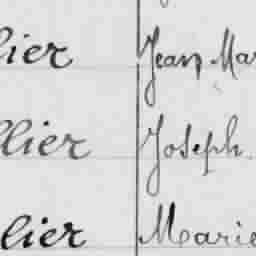 lier Jean Mar
llier Joseph.
llier Marie